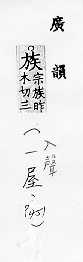 廣韻
族宗族昨木切三
入聲
(一屋、